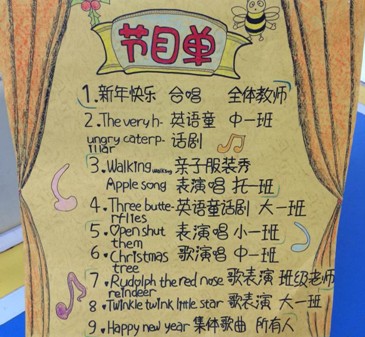 节目单
1.新年快乐 合唱 全体教师
2.The very h- 英语童 中一班
ungry caterp- 话剧
illar
3.Walking 亲子服装秀
Apple song 表演唱 托一班
4.Three butte- 英语童话剧 大一班
rflies
5.Open shut 表演唱 小一班
them
6.Christmas 歌演唱 中一班
tree
7.Rudolph the red nose 歌表演 班级老师
reindeer
8.Twinkle twink little star 歌表演 大一班
9.Happy new year 集体歌曲 所有人